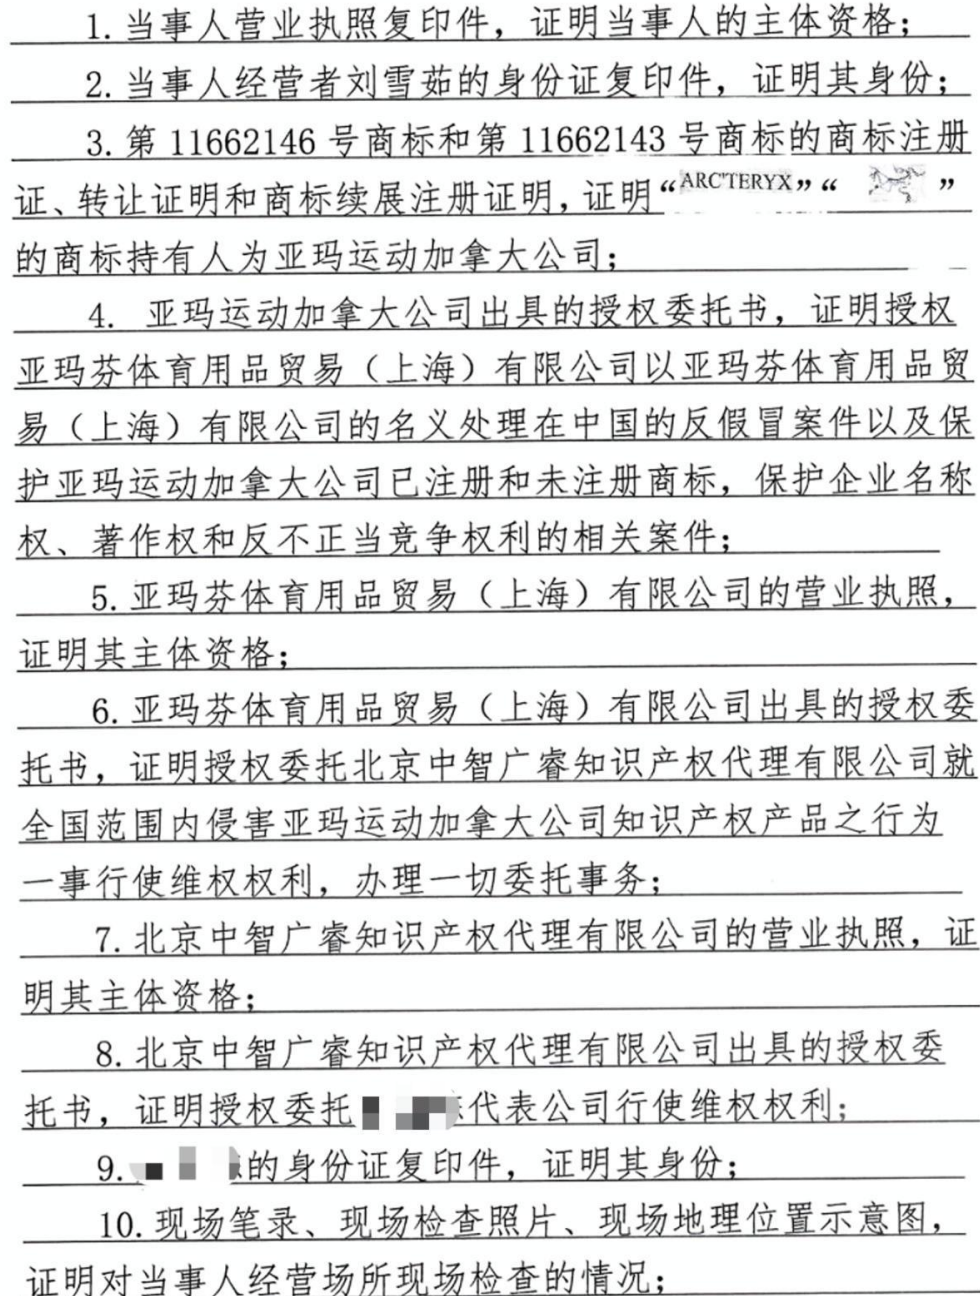 1.当事人营业执照复印件，证明当事人的主体资格；
2.当事人经营者刘雪茹的身份证复印件，证明其身份；
3.第 11662146 号商标和第 11662143 号商标的商标注册
证、转让证明和商标续展注册证明，证明“ARC'TERYX”“ ”
的商标持有人为亚玛运动加拿大公司；
4. 亚玛运动加拿大公司出具的授权委托书，证明授权
亚玛芬体育用品贸易（上海）有限公司以亚玛芬体育用品贸
易（上海）有限公司的名义处理在中国的反假冒案件以及保
护亚玛运动加拿大公司已注册和未注册商标，保护企业名称
权、著作权和反不正当竞争权利的相关案件；
5.亚玛芬体育用品贸易（上海）有限公司的营业执照，
证明其主体资格；
6.亚玛芬体育用品贸易（上海）有限公司出具的授权委
托书，证明授权委托北京中智广睿知识产权代理有限公司就
全国范围内侵害亚玛运动加拿大公司知识产权产品之行为
一事行使维权权利，办理一切委托事务；
7.北京中智广睿知识产权代理有限公司的营业执照，证
明其主体资格；
8.北京中智广睿知识产权代理有限公司出具的授权委
托书，证明授权委托代表公司行使维权权利；
9.的身份证复印件，证明其身份；
10.现场笔录、现场检查照片、现场地理位置示意图，
证明对当事人经营场所现场检查的情况；